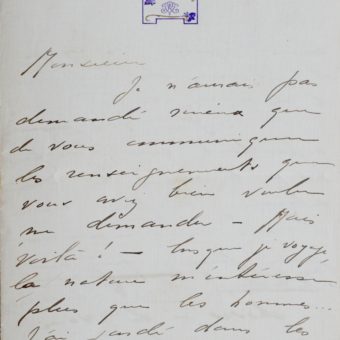 Monsieur
Je n'aurais pas
demandé mieux que
de vous communiquer
les renseignements que
vous avez bien voulu
me demander – Mais
voilà ! – lorsque je voyage
la nature m'intéresse
plus que les hommes...
J'ai gardé dans les